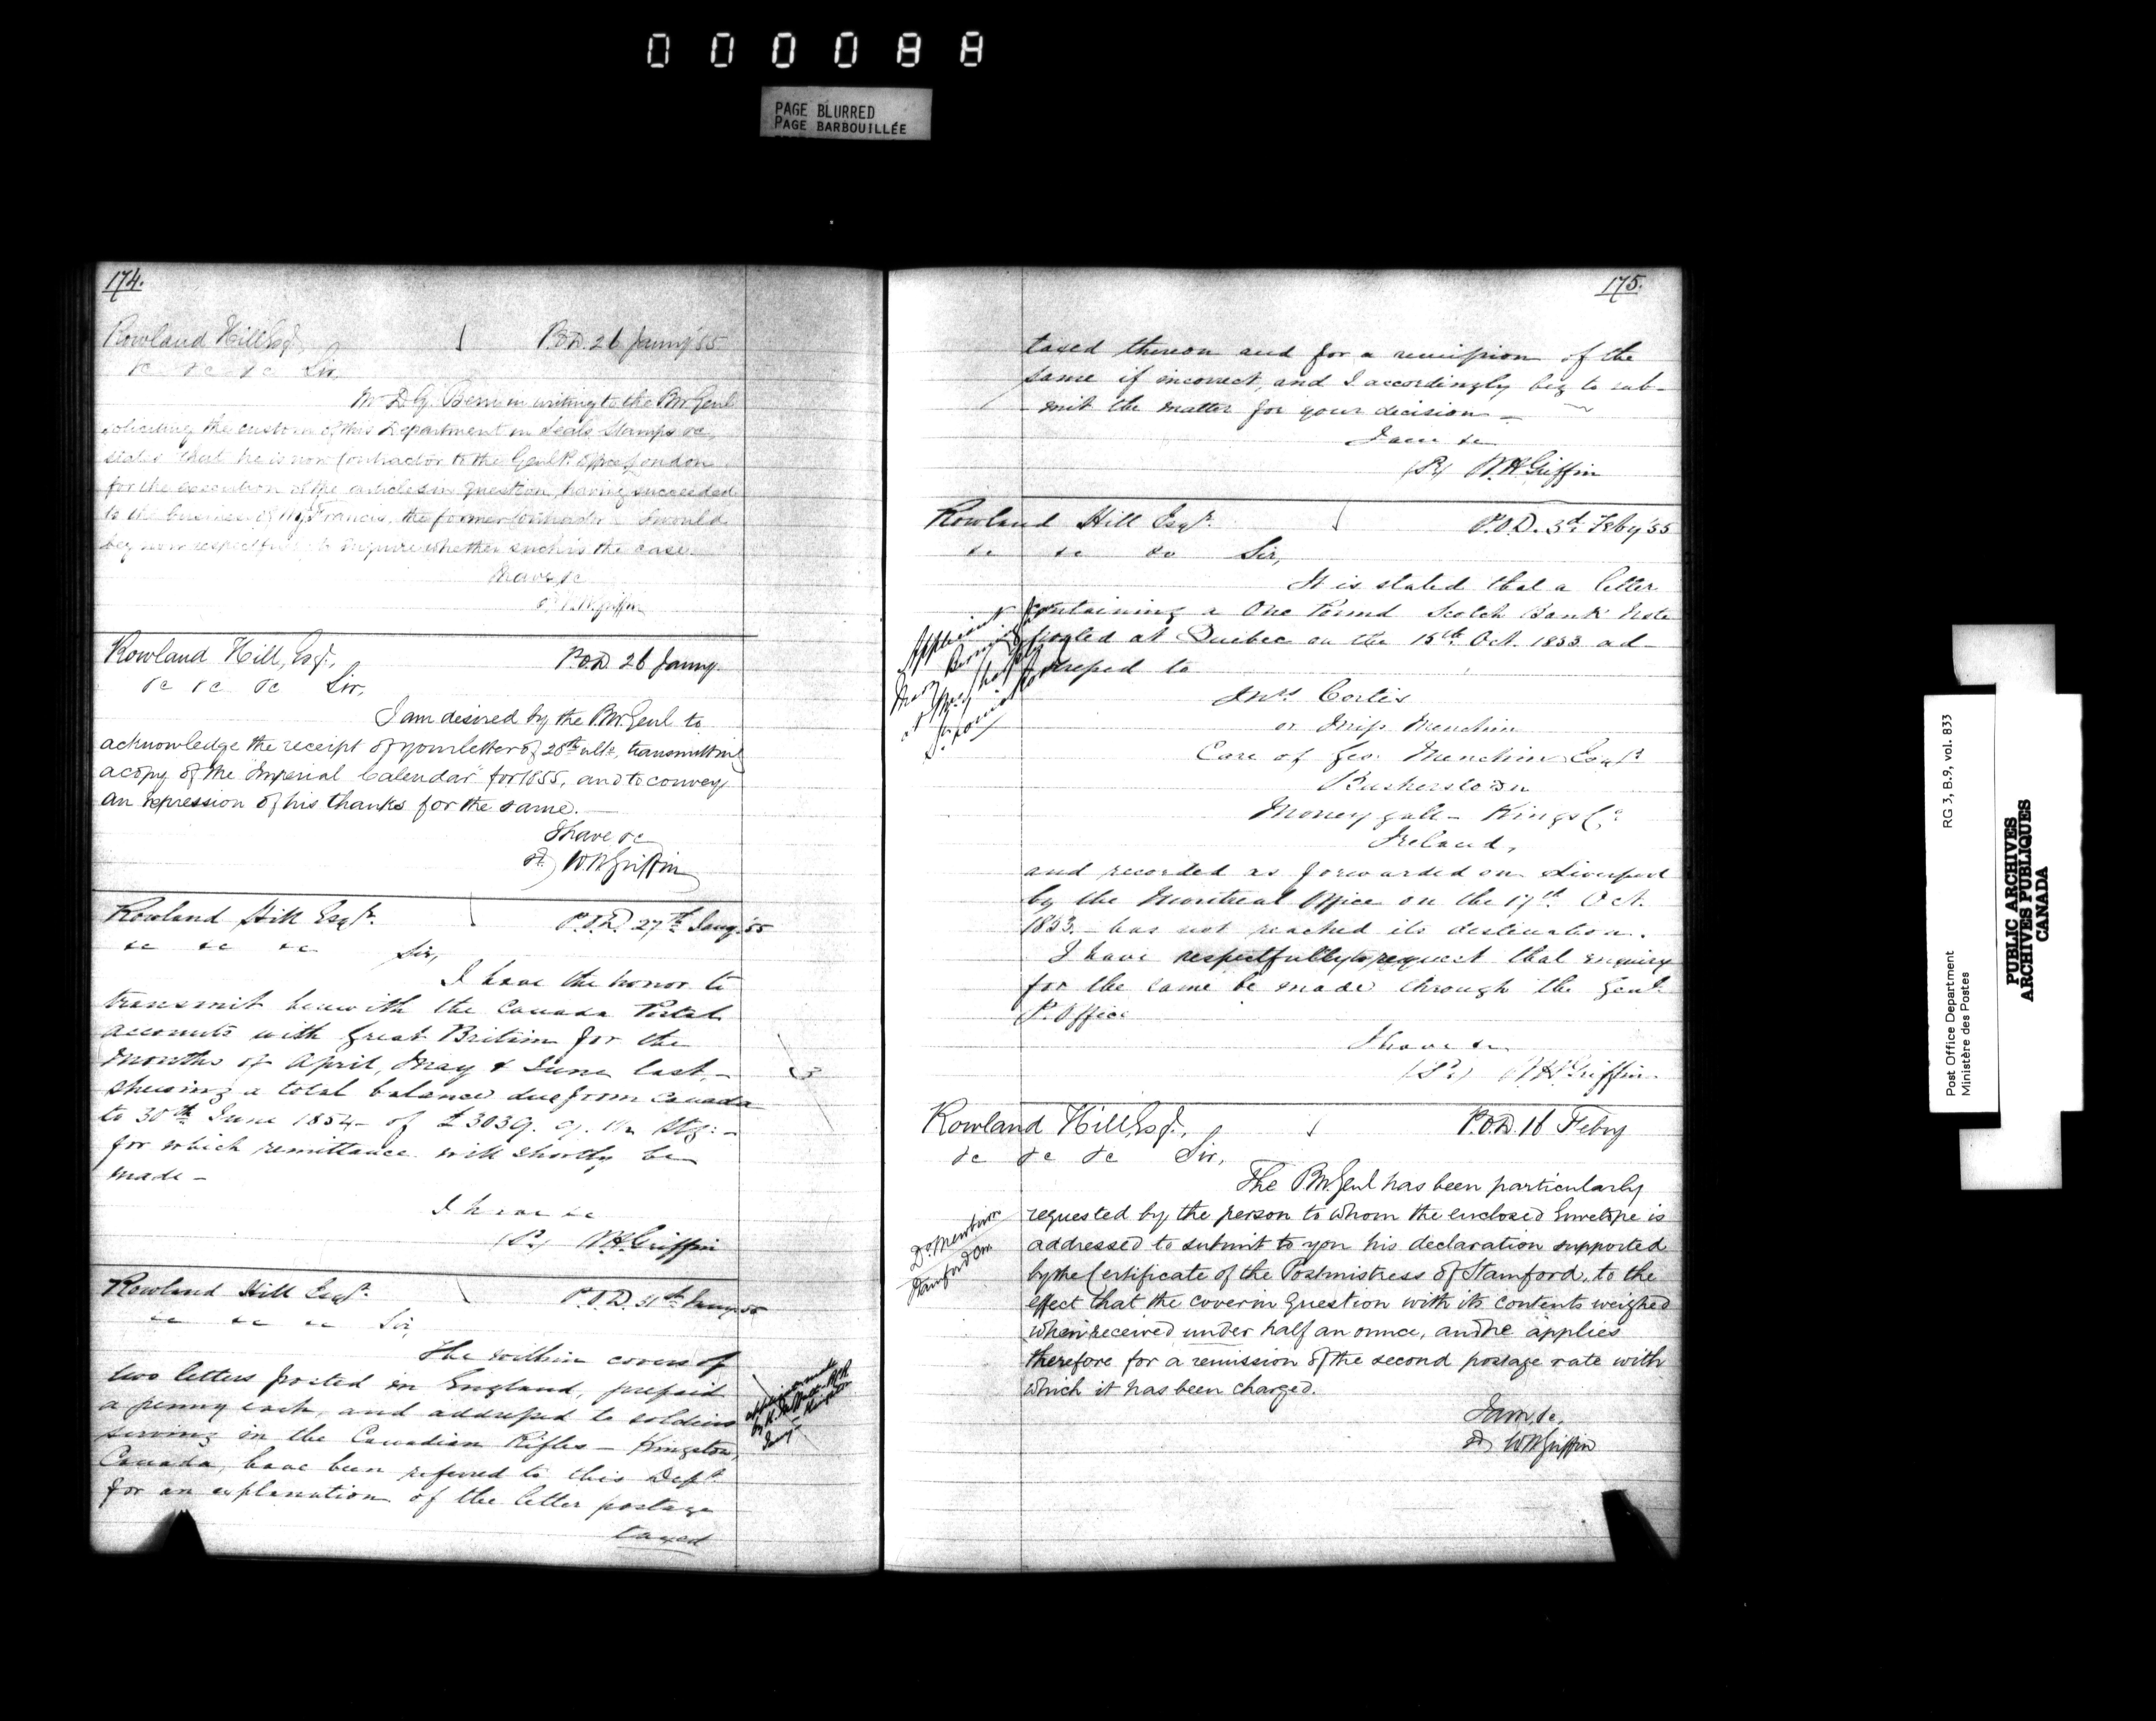 000088
PAGE BLURRED
PAGE BARBOUILLÉE
174.
Rowland Hill Esqr. P.O.D. 26 Janny '55
&c &c &c Sir,
Mr D.G. in writing to the P.M. Genl
soliciting the custom of this Department in Seals Stamps &c,
states that he is now Contractor to the Genl P. Office London
for the execution of the articles in question, having succeeded
to the business of Francis, the former Contractor. I would
beg now respectfully to inquire whether such is the case.
I have &c
W.H. Griffin
Rowland Hill, Esqr., P.O.D. 26 Janny.
&c &c &c Sir,
I am desired by the P.M. Genl to
acknowledge the receipt of your letter of 28th ulto, transmitting
a copy of the "Imperial Calendar" for 1855, and to convey
an expression of his thanks for the same.—
I have &c
W.H. Griffin
Rowland Hill Esqr. P.O.D. 27th Jany. '55
&c &c &c Sir,
I have the honor to
transmit herewith the Canada Postal
accounts with Great Britain for the
months of April, May & June last,—
shewing a total balance due from Canada
to 30th June 1854— of £3039. 9. Stg:—
for which remittance will shortly be
made—
I have &c
W.H. Griffin
Rowland Hill Esqr. P.O.D. 31st Jany 55
&c &c &c Sir,
The within covers of
two letters posted in England, prepaid
a penny each, and addressed to soldiers
serving in the Canadian Rifles — Kingston,
Canada, have been referred to this Dept.
for an explanation of the letter postage
taxed
175.
taxed thereon and for a remission of the
same if incorrect, and I accordingly beg to sub-
mit the matter for your decision—
I am &c
W.H. Griffin
Rowland Hill Esqr. P.O.D. 3d. Feby '55
&c &c &c Sir,
It is stated that a letter
containing a One Pound Scotch Bank Note
posted at Quebec on the 15th Oct. 1853 ad-
dressed to
Mrs Certis
or Miss Menchin
Care of Geo. Menchin Esqr
Busherstown
Moneygall — Kings Co.
Ireland,
and recorded as forwarded on Liverpool
by the Montreal Office on the 17th Oct.
1853.— has not reached its destination.
I have respectfully to request that enquiry
for the same be made through the Genl
P. Office
I have &c
W.H. Griffin
Rowland Hill, Esqr., P.O.D. 16 Feby
&c &c &c Sir,
The P.M. Genl has been particularly
requested by the person to whom the enclosed Envelope is
addressed to submit to you his declaration supported
by the Certificate of the Postmistress of Stamford, to the
effect that the cover in question with its contents weighed
when received under half an ounce, and he applies
therefore for a remission of the second postage rate with
which it has been charged.
I am, &c,
W.H. Griffin
Dr. Mewburn
Stamford
RG 3, B.9, vol. 833
Post Office Department
Ministère des Postes
PUBLIC ARCHIVES
ARCHIVES PUBLIQUES
CANADA